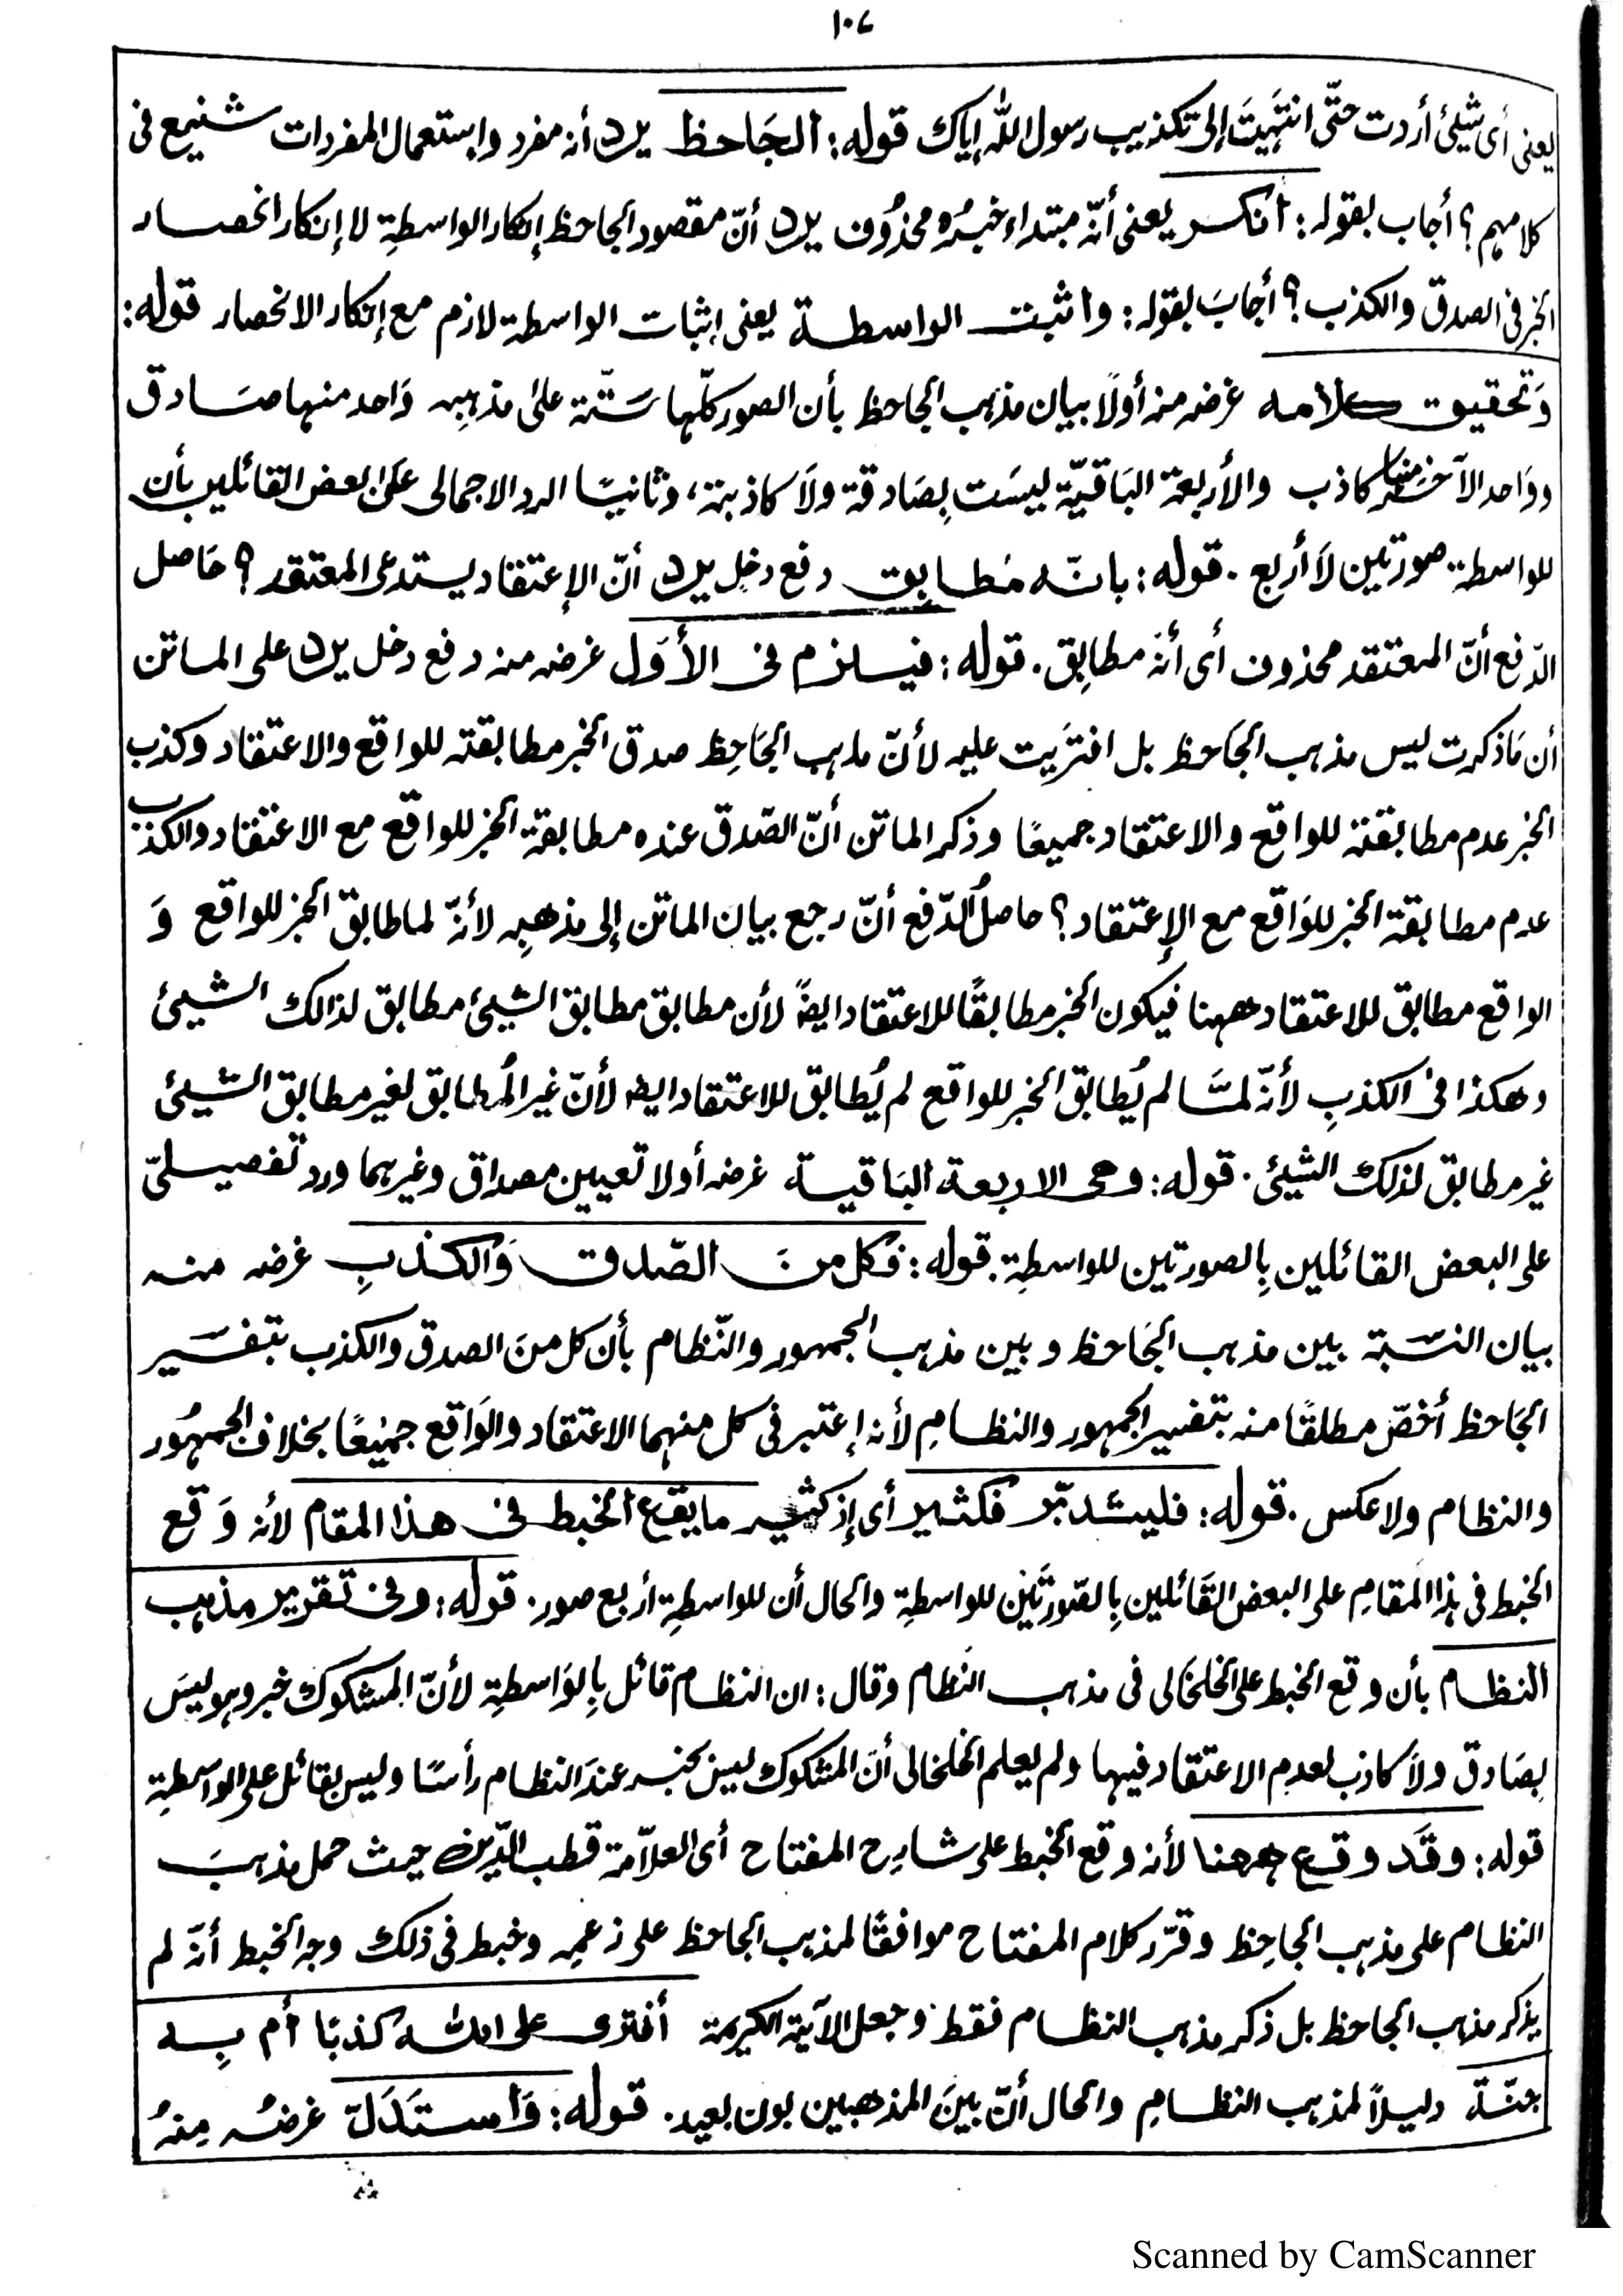 ١٠٧
يعنى أى شئ أردت حتّى انتَهَيتَ إلى تكذيب رسول الله إياك قوله: الجَاحظ يرد أنه مفرد واستعمال المفردات شنيع فى
كلامهم؟ أجاب بقوله: انكر يعنى أنّه مبتداء خبرُه محذُوف يرد أنّ مقصود الجاحظ إنكار الواسطةِ لا إنكار انحصار
الخبر فى الصدق والكذب؟ أجابَ بقوله: واثبت الواسطة يعنى إثبات الواسطة لازم مع إنكار الانحصار قوله:
وَتحقيق كلامه غرضه منه أولًا بيان مذهب الجاحظ بأن الصور كلّها ستّة علىٰ مذهبِه وَاحد منها صَادق
ووَاحد الآخر منها كاذب والأربعة البَاقيّة ليسَت بِصَادقة ولاَ كاذبة، وثانيًا الرد الاجمالى علىٰ البعض القائلين بأن
للواسطة صورتين لاَ أربع. قوله: بانّه مُطابق دفع دخلٍ يرد أنّ الإعتقاد يستدعى المعتقد؟ حَاصل
الدّفع أنّ المعتقد محذوف أى أنّه مطابِق. قوله: فيلزم فى الأوّل غرضه منه دفع دخل يرد على الماتن
أن مَاذكرت ليس مذهب الجَاحظ بل افترَيت عليه لأنّ مذهب الجَاحِظ صدق الخبر مطابقته للواقع والاعتقاد وكذب
الخبر عدم مطابقته للواقع والاعتقاد جميعًا وذكر الماتن أنّ الصّدق عنده مطابقة الخبر للواقع مع الاعتقاد والكذب
عدم مطابقة الخبر للوَاقع مع الإعتقاد؟ حاصلُ الدّفع أنّ رجع بيان الماتن إلى مذهبِه لأنّه لماطابق الخبر للواقع وَ
الواقع مطابق للاعتقاد ههنا فيكون الخبر مطابقًا للاعتقاد ايضًا لأن مطابق مطابق الشيئ مطابق لذالك الشيئ
وهكذا فى الكذبِ لأنّه لمّا لم يُطابق الخبر للواقع لم يُطابق للاعتقاد ايضا لأنّ غير المُطابق لغير مطابق الشيئ
غير مطابق لذلك الشيئ. قوله: وهى الاربعة البَاقية غرضه أولا تعيين مصداق وغيرهما ورد تفصيلىّ
على البعض القائلين بِالصورتين للواسطةِ. قوله: فكل منَ الصّدق وَالكذبِ غرضه منه
بيان النسبة بين مذهب الجَاحظ وبين مذهب الجمهور والنّظام بأن كل منَ الصدق والكذب بتفسير
الجَاحظ أخصّ مطلقًا منه بتفسير الجمهور والنظامِ لأنه إعتبر فى كل منهما الاعتقاد والوَاقع جميْعًا بخلاف الجمهُور
والنظام ولا عكس. قوله: فليتدبّر فكثير أى إذ كثير مايقع الخبط فى هذا المقام لأنه وَقع
الخبط فى هذا المقامِ على البعض القَائلين بِالصّورتَين للواسطةِ والحال أن للواسطةِ أربع صور. قوله: وفى تقرير مذهب
النظام بأن وقع الخبط على الخلخَالى فى مذهب النظام وقال: ان النظام قائل بِالوَاسطةِ لأنّ المشكوك خبر وهو ليسَ
بِصَادق ولاَ كاذب لعدمِ الاعتقاد فيها ولم يعلم الخلخالى أنّ المشكوك ليس بخبر عندَ النظام رأسًا وليس بقائل على الواسطةِ
قوله: وقَد وقع ههنا لأنه وقع الخبط على شارِح المفتاح أى العلاّمة قطب الدّين حيث حمل مذهبَ
النظام على مذهب الجاحِظ وقرّر كلام المفتاح موافقًا لمذهب الجاحظ على زعمِه وخبط فى ذلك وجه الخبط أنّه لم
يذكر مذهب الجاحظ بل ذكر مذهب النظام فقط وجعل الآية الكريمة أفترى على الله كذبًا أم بِه
جنّة دليلاً لمذهب النظامِ والحال أنّ بينَ المذهبين بون بعيد. قوله: وَاستَدَلّ غرضُه مِنهُ
Scanned by CamScanner